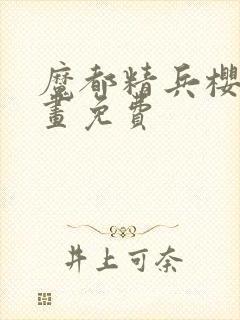 魔都精兵櫻
畫免費
井上可奈